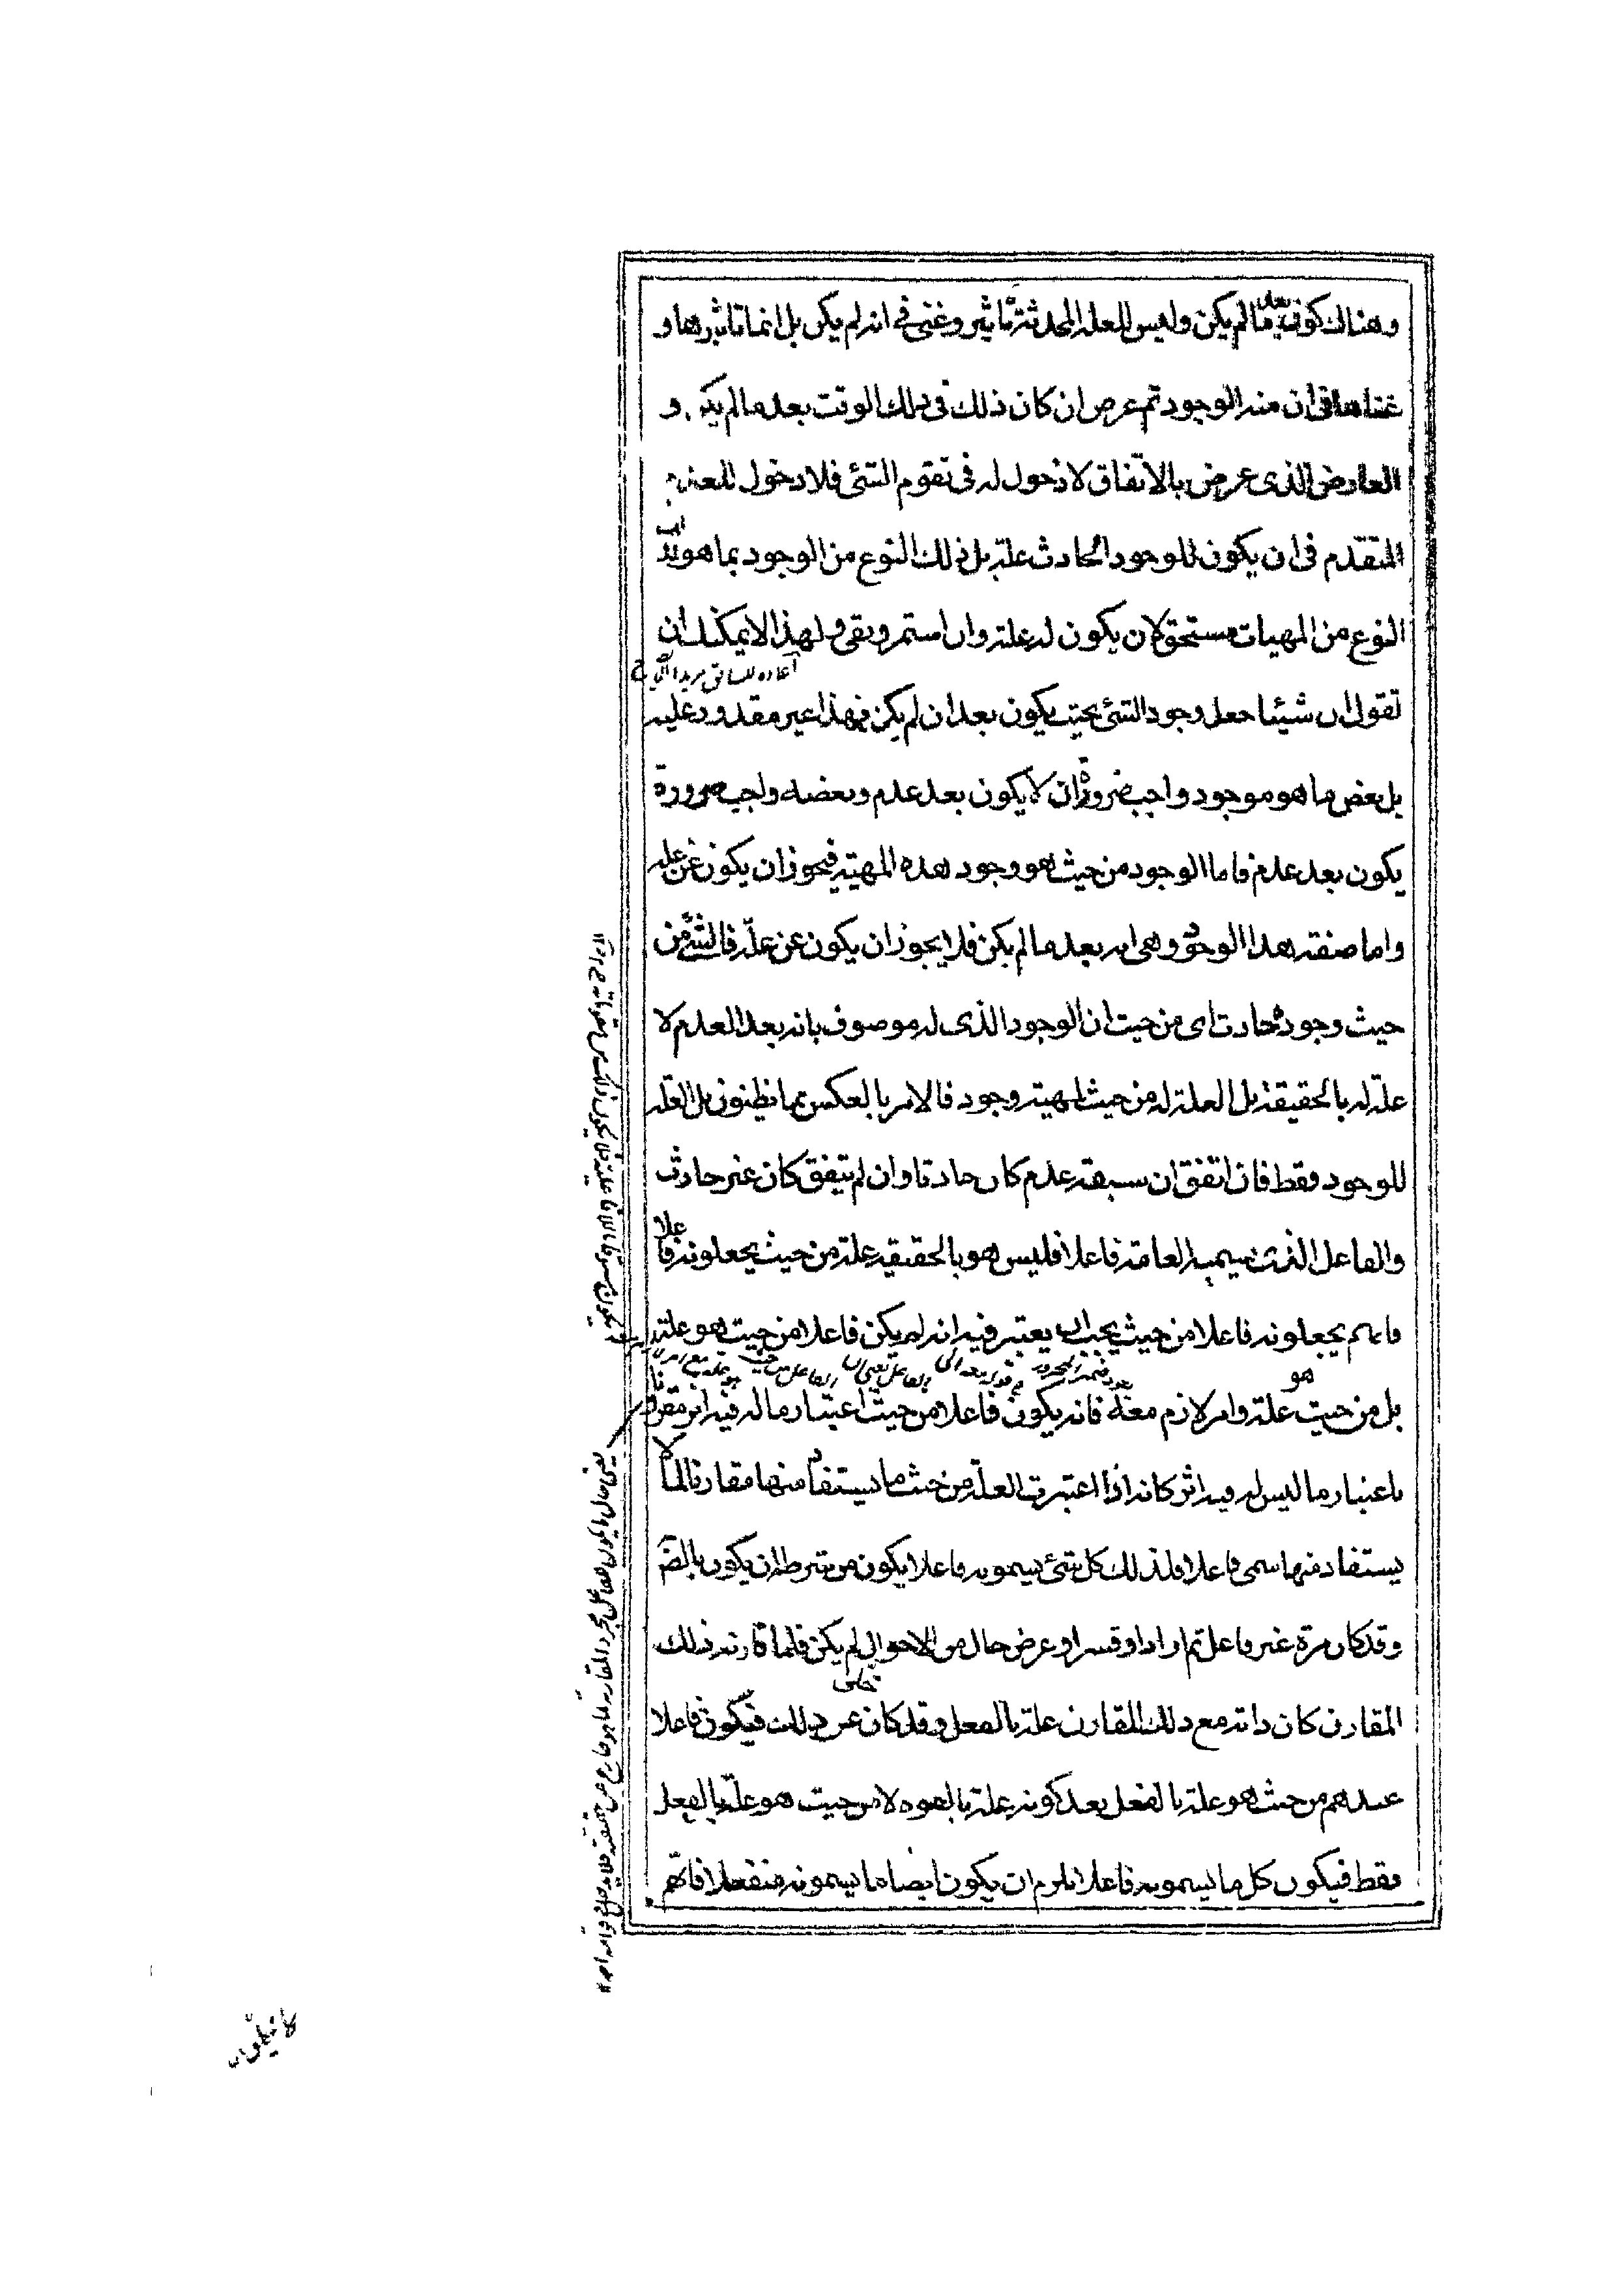 وهناك كونه بعد ما لم يكن وليس للعلة المحدثة تاثير وغنى في انه لم يكن بل انما تاثيرها و
غناها في ان منه الوجود ثم عرض ان كان ذلك في ذلك الوقت بعد ما لم يكن و
العارض الذى عرض بالاتفاق لا دخول له فى تقوم الشئ فلا دخول للعدم
المتقدم فى ان يكون للوجود الحادث علة بل ذلك النوع من الوجود بما هو لذلك
النوع من المهيات مستحق لان يكون له علة وان استمر وبقى ولهذا لا يمكنك ان
تقول ان شيئا جعل وجود الشئ بحيث يكون بعد ان لم يكن فهذا غير مقدور عليه
بل بعض ما هو موجود واجب ضرورة ان لا يكون بعد عدم وبعضه واجب ضرورة
يكون بعد عدم فاما الوجود من حيث هو وجود هذه المهية فيجوز ان يكون عن علة
واما صفة هذا الوجود وهى انه بعد ما لم يكن فلا يجوز ان يكون عن علة فالشئ من
حيث وجوده حادث اى من حيث ان الوجود الذى له موصوف بانه بعد العدم لا
علة له بالحقيقة بل العلة له من حيث لمهيته وجود فالامر بالعكس مما يظنون بل العلة
للوجود فقط فان اتفق ان سبقه عدم كان حادثا وان لم يتفق كان غير حادث
والفاعل الذى يسميه العامة فاعلا فليس هو بالحقيقة علة من حيث يجعلونه فاعلا
فانهم يجعلونه فاعلا من حيث يجب ان يعتبر فيه انه لم يكن فاعلا من حيث هو علة
بل من حيث هو علة وامر لازم معه فانه يكون فاعلا من حيث اعتبار ما له فيه اثر مقرونا
باعتبار ما ليس له فيه اثر كانه اذا اعتبرت العلة من حيث ما يستفاد منها مقارنا لما لا
يستفاد منها سمى فاعلا فلذلك كل شئ يسمونه فاعلا يكون من شرطه ان يكون بالضرورة
وقد كان مرة غير فاعل ثم اراد او قسر او عرض حال من الاحوال لم يكن فلما قارنه ذلك
المقارن كان ذاته مع ذلك المقارن علة بالفعل وقد كان خلى عن ذلك فيكون فاعلا
عندهم من حيث هو علة بالفعل بعد كونه علة بالقوة لا من حيث هو علة بالفعل
فقط فيكون كل ما يسمونه فاعلا يلزم ان يكون ايضا ما يسمونه منفعلا فانهم